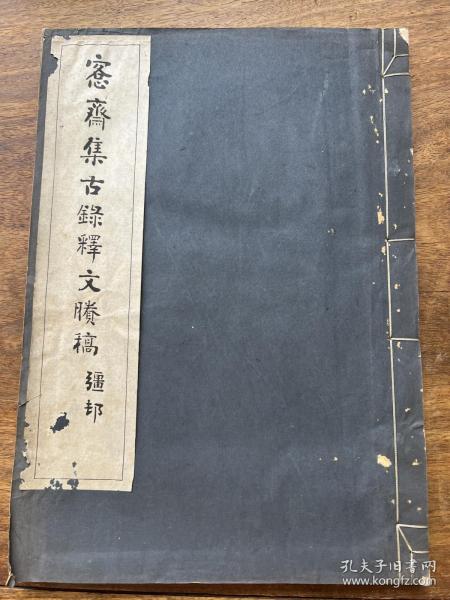 愙齋集古錄釋文賸稿 彊邨
孔夫子旧书网
www.kongfz.com